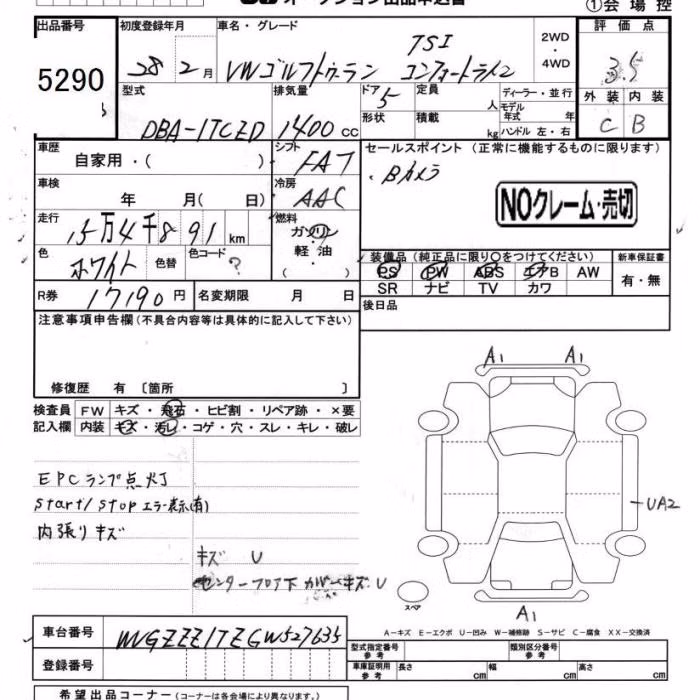 オークション出品申込書
①会場控
出品番号 初度登録年月 車名・グレード 評価点
5290 28年2月 VWゴルフトゥーラン TSI コンフォートライン 2WD・4WD 3.5
型式 排気量 ドア 定員 ディーラー・並行 外装 内装
DBA-1TCZD 1400cc 5 人 モデル年式 年 C B
形状 積載 kg ハンドル 左・右
車歴 シフト セールスポイント (正常に機能するものに限ります)
自家用・( ) FA7 ・Bカメラ
車検 冷房
年 月( 日) AAC NOクレーム・売切
走行 燃料
15万4千891km ガソリン
軽油
( )
色 色替 色コード 装備品(純正品に限り○をつけてください) 新車保証書
ホワイト ? PS PW ABS エアB AW 有・無
SR ナビ TV カワ
R券 17190円 名変期限 月 日 後日品
注意事項申告欄(不具合内容等は具体的に記入して下さい)
修復歴 有 〔箇所 〕
検査員 FW キズ・飛石・ヒビ割・リペア跡・×要
記入欄 内装 キズ・汚レ・コゲ・穴・スレ・キレ・破レ
A1 A1
EPCランプ点灯
Start/Stopエラー表示(有)
内張りキズ
UA2
キズ U
センターフロア下カバーキズU
スペア
A1
A-キズ E-エクボ U-凹み W-補修跡 S-サビ C-腐食 XX-交換済
車台番号 WVGZZZ1TZGW527635
型式指定番号 参考 類別区分番号 参考
登録番号 車庫証明用 参考 長さ cm 幅 cm 高さ cm
希望出品コーナー(コーナーは各会場により異なります。)